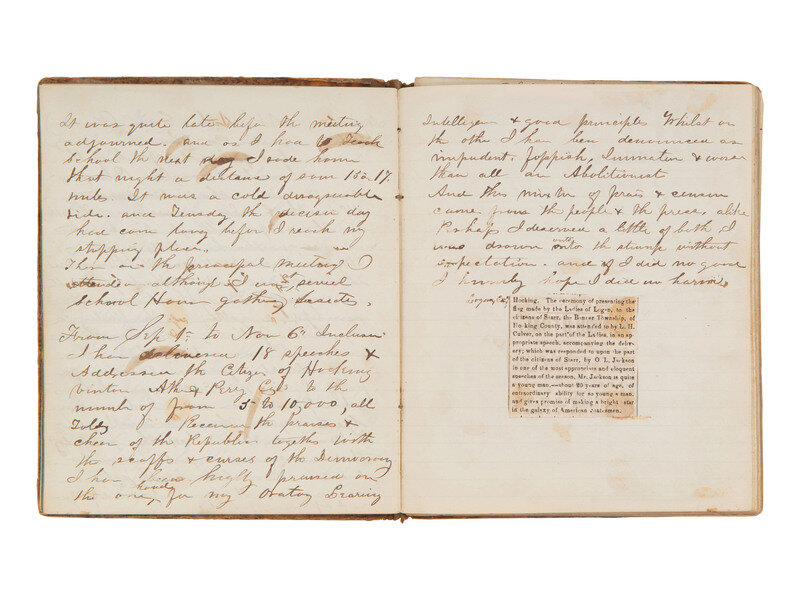 It was quite late befor the meeting
adjourned. and as I had to Teach
School the next day I rode home
that night a distance of som 16 or 17
miles. It was a cold disagreeable
ride. and Tuesday the decision day
had come long befor I reach my
stopping place.
Then on the principal meeting I
attended although I was at several
School House gathering besides.
From Sep 1st to Nov 6th Inclusive
I have delivered 18 speeches &
Addressed the Citizens of Hocking
Vinton Athens & Perry Cos to the
number of from 5 to 10,000, all
Told. I Received the praises &
cheers of the Republican together with
the scoffs & curses of the Democracy
I have been highly praised on
the one hand for my Oratory Learning
Intelligence & good principles Whilst on
the other I have been denounced as
impudent, foppish, Immature & worse
than all an Abolitionist
And this mixture of praise & censure
came from the people & the press, alike
Perhaps I deserved a little of both I
was drawn onto the stump without
expectation. and if I did no good
I humbly hope I did no harm.
Logan Gaz
Hocking. The ceremony of presenting the
flag made by the Ladies of Logan, to the
citizens of Starr, the Banner Township, of
Hocking County, was attended to by L. H.
Culver, on the part of the Ladies, in an ap-
propriate speech, accompanying the deliv-
ery; which was responded to upon the part
of the citizens of Starr, by O. L. Jackson
in one of the most appropriate and eloquent
speeches of the season. Mr. Jackson is quite
a young man,—about 20 years of age, of
extraordinary ability for so young a man,
and gives promise of making a bright star
in the galaxy of American statesmen.